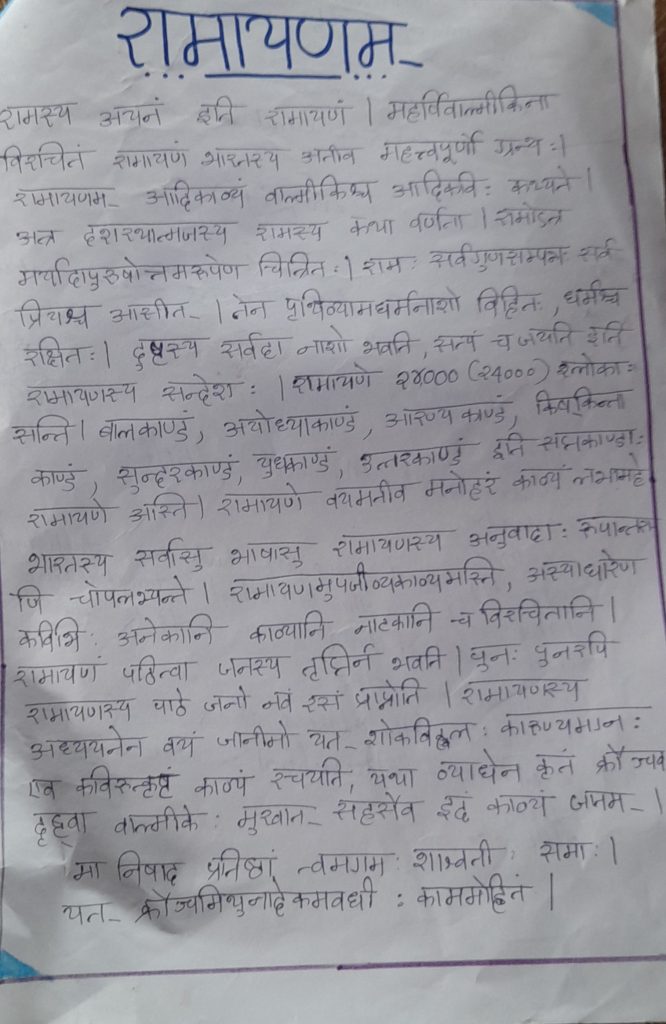 रामायणम्
रामस्य अयनं इति रामायणं । महर्षिवाल्मीकिना
विरचितं रामायणं भारतस्य अतीव महत्त्वपूर्णो ग्रन्थः।
रामायणम् आदिकाव्यं वाल्मीकिश्च आदिकविः कथ्यते।
अत्र दशरथात्मजस्य रामस्य कथा वर्णता । रामोऽत्र
मर्यादापुरुषोत्तमरूपेण चित्रितः। रामः सर्वगुणसम्पन्नः सर्व
प्रियश्च आसीत् । तेन पृथिव्यामधर्मनाशो विहितः, धर्मश्च
रक्षितः। दुष्टस्य सर्वदा नाशो भवति, सत्यं च जयति इति
रामायणस्य सन्देशः । रामायणे २४००० (24000) श्लोकाः
सन्ति। बालकाण्डं, अयोध्याकाण्डं, आरण्यकाण्डं, किष्किन्ता
काण्डं, सुन्दरकाण्डं, युध्दकाण्डं, उत्तरकाण्डं इति सप्तकाण्डाः
रामायणे अस्ति। रामायणे वयमतीव मनोहरं काव्यं लभामहे
भारतस्य सर्वासु भाषासु रामायणस्य अनुवादाः रूपान्तरा
णि चोपलभ्यन्ते । रामायणमुपजीव्यकाव्यमस्ति, अस्याधारेण
कविभिः अनेकानि काव्यानि नाटकानि च विरचितानि।
रामायणं पठित्वा जनस्य तृप्तिर्न भवति। पुनः पुनरपि
रामायणस्य पाठे जनो नवं रसं प्राप्नोति । रामायणस्य
अध्ययनेन वयं जानीमो यत् शोकविह्वलः कारुण्यमानः
एव कविरुत्कृष्टं काव्यं रचयति, यथा व्याधेन कृतं क्रौञ्चव
दृष्ट्वा वाल्मीकेः मुखात् सहसैव इदं काव्यं जातम् ।
मा निषाद प्रतिष्ठां त्वमगमः शाश्वतीः समाः।
यत् क्रौञ्चमिथुनादेकमवधीः काममोहितं ।